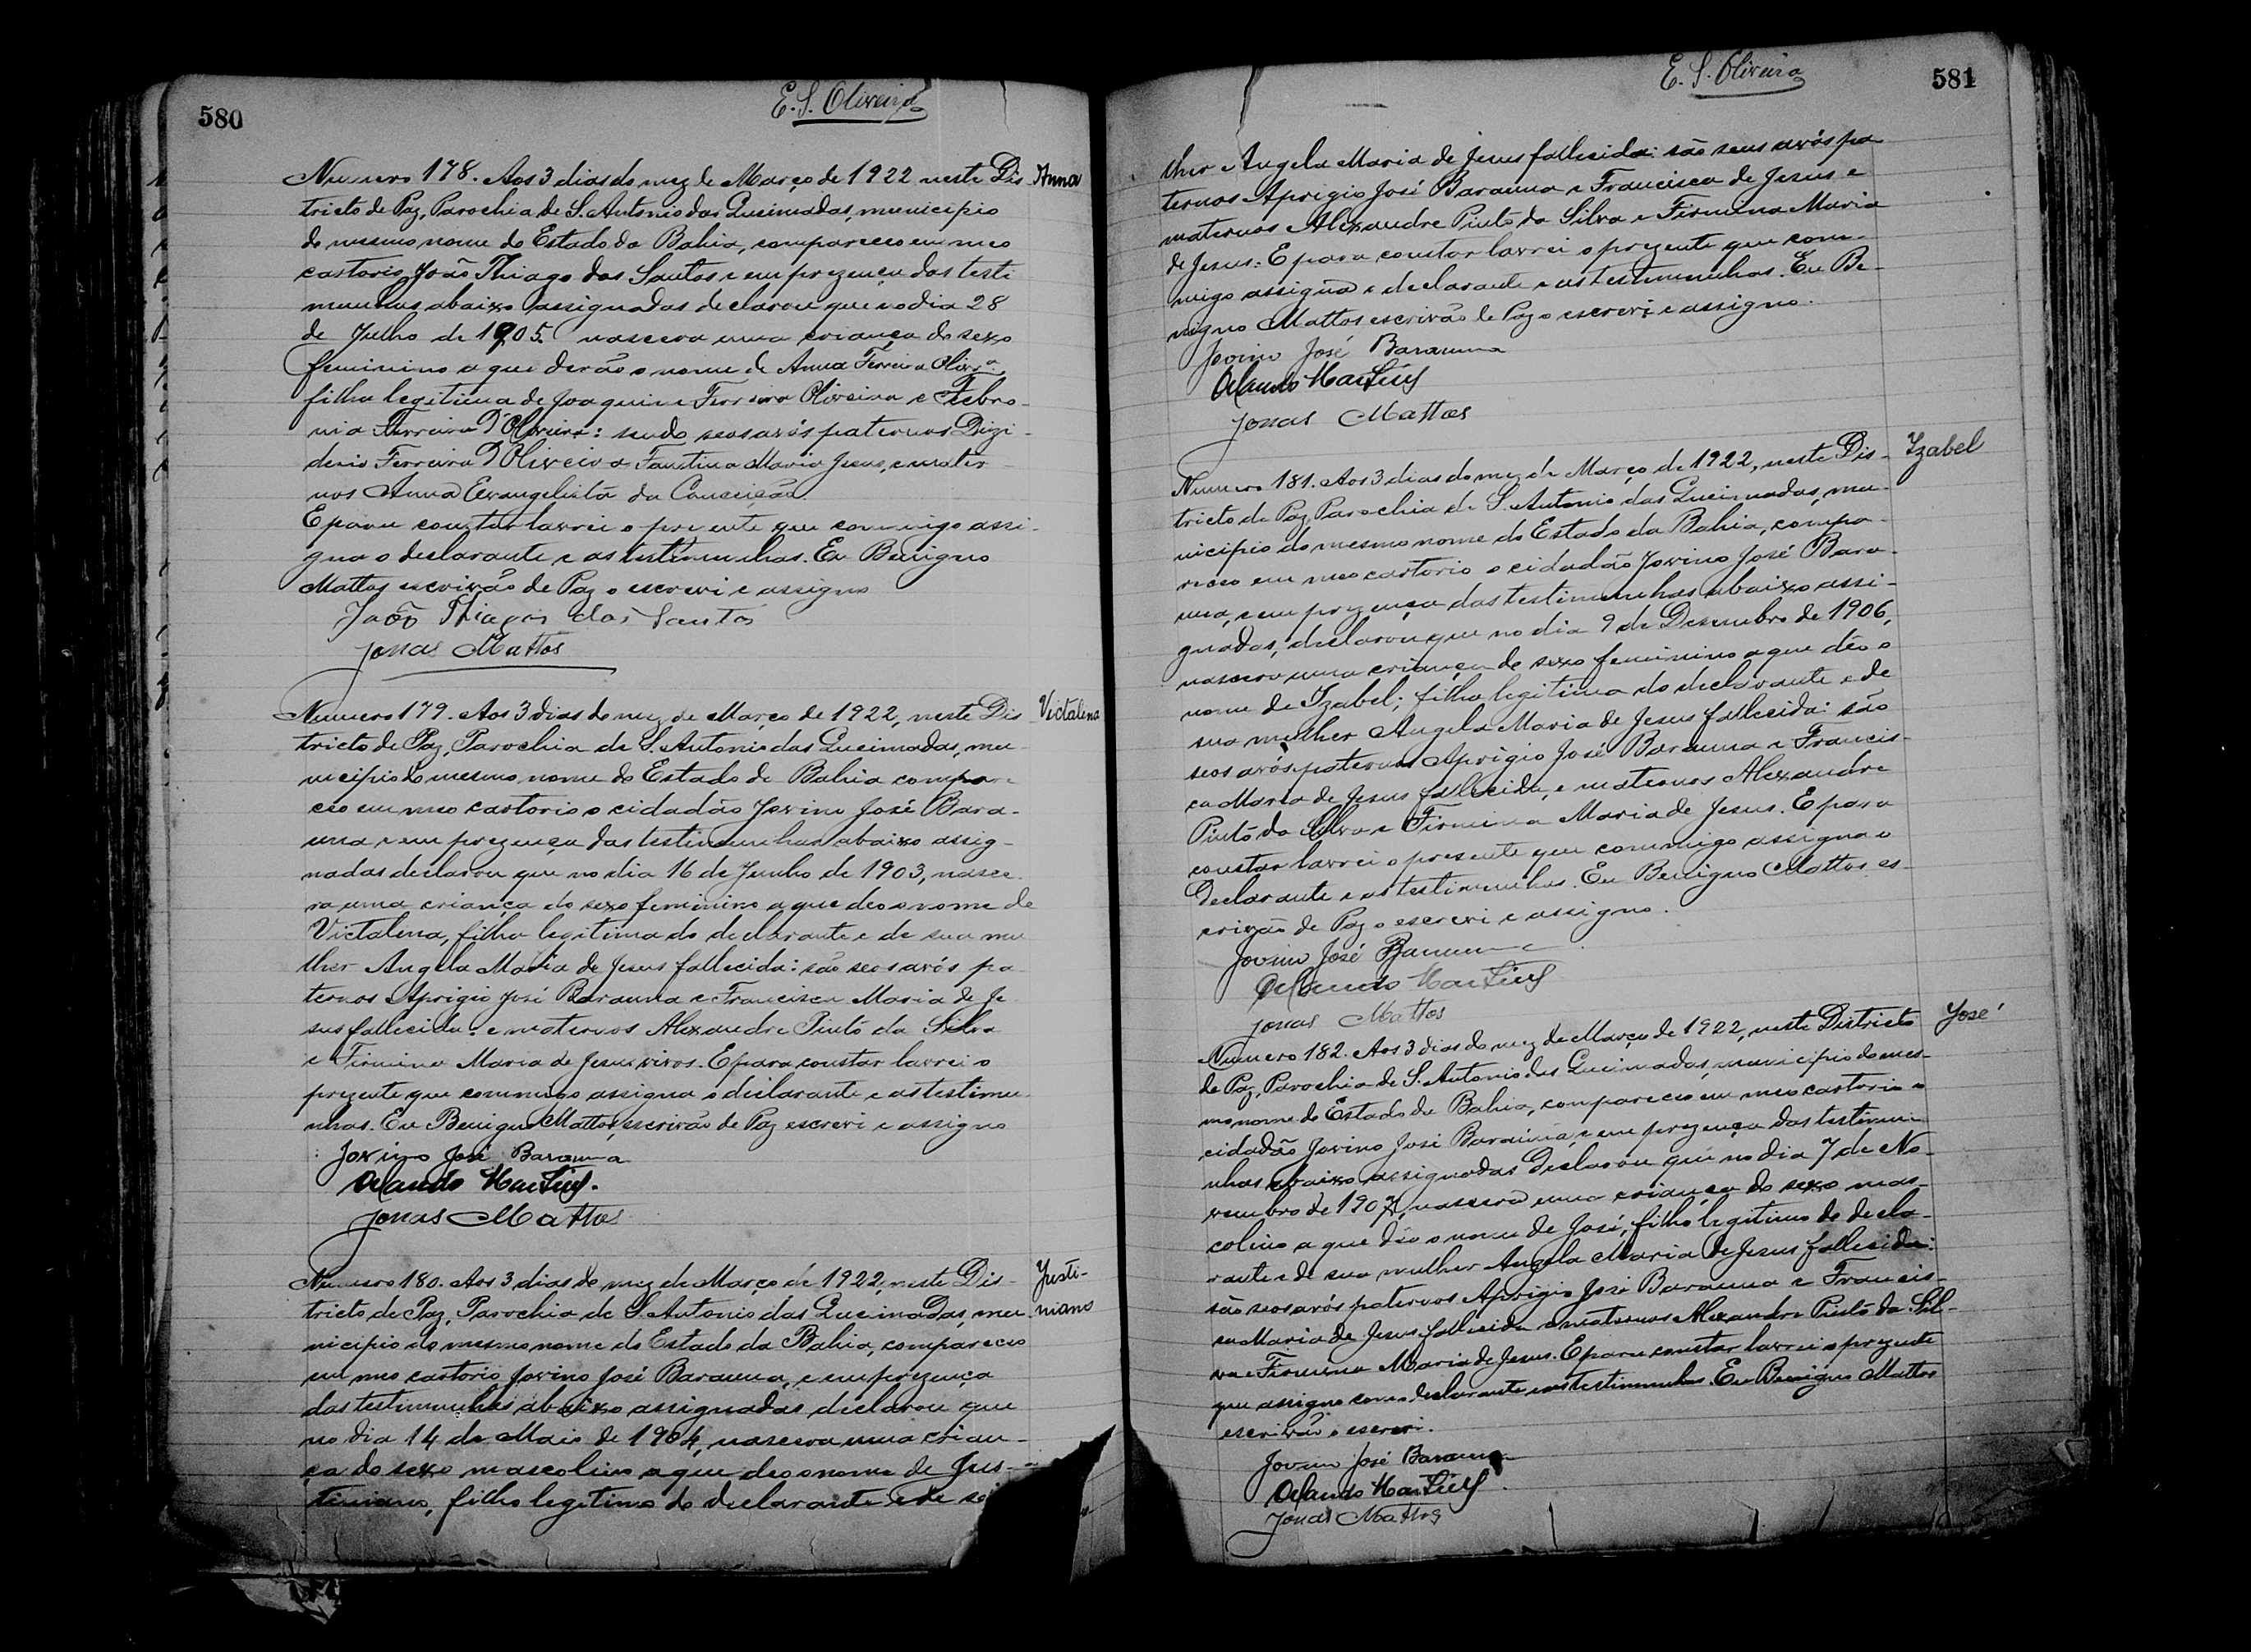 580
E. S. Oliveira
Numero 178. Aos 3 dias do mez de Março de 1922 neste Dis
Anna
tricto de Paz, Parochia de S. Antonio das Queimadas, municipio
do mesmo nome do Estado da Bahia, compareceo em meo
cartorio João Thiago dos Santos e em prezença das teste
munhas abaixo assignadas declarou que no dia 28
de Julho de 1905 nascera uma criança do sexo
feminino a que derão o nome de Anna Ferreira Olivrª
filha legitima de Joaquim Ferreira Oliveira e Febro-
nia Ferreira D'Oliveira: sendo seos avós paternos Dezi-
derio Ferreira D'Oliveira e Faustina Maria Jesus, e mater-
nos Anna Evangelista da Conceição
E para constar lavrei o prezente que commigo assi-
gna o declarante e as testimunhas. Eu Benigno
Mattos escrivão de Paz o escrevi e assigno
João Thiago dos Santos
Jonas Mattos
Numero 179. Aos 3 dias do mez de Março de 1922, neste Dis
Victalina
tricto de Paz, Parochia de S. Antonio das Queimadas, mu-
nicipio do mesmo nome do Estado da Bahia compare-
ceo em meo cartorio o cidadão Jovino José Bara-
una e em prezença das testimunhas abaixo assig-
nadas declarou que no dia 16 de Junho de 1903, nasce-
ra uma criança do sexo feminino a que deo o nome de
Victalina, filha legitima do declarante e de sua mu
lher Angela Maria de Jesus fallecida: são seos avós pa-
ternos Aprigio José Barauna e Francisca Maria de Je
sus fallecida: e maternos Alexandre Pinto da Silva
e Firmina Maria de Jesus vivos. E para constar lavrei o
prezente que commigo assigna o declarante e as testimu-
nhas. Eu Benigno Mattos, escrivão de Paz escrevi e assigno
Jovino José Barauna
Orlando Martins.
Jonas Mattos
Numero 180. Aos 3 dias do mez de Março de 1922, neste Dis-
Justi-
tricto de Paz, Parochia de S. Antonio das Queimadas, mu-
niano
nicipio do mesmo nome do Estado da Bahia, compareceo
em meo cartorio Jovino José Barauna, e em prezença
das testimunhas abaixo assignadas declarou que
no dia 14 de Maio de 1904, nascera uma crian-
ça do sexo mascolino a que deo o nome de Jus-
tiniano, filho legitimo do declarante e de
581
E. S. Oliveira
lher Angela Maria de Jesus fallecida: são seus avós pa
ternos Aprigio José Barauna e Francisca de Jesus e
maternos Alexandre Pinto da Silva e Firmina Maria
de Jesus. E para constar lavrei o prezente que com-
migo assigna o declarante e as testimunhas. Eu Be-
nigno Mattos escrivão de Paz o escrevi e assigno.
Jovino José Barauna
Orlando Martins
Jonas Mattos
Numero 181. Aos 3 dias do mez de Março de 1922, neste Dis-
Izabel
tricto de Paz, Parochia de S. Antonio das Queimadas, mu-
nicipio do mesmo nome do Estado da Bahia, compa-
receo em meo cartorio o cidadão Jovino José Bara-
una, e em prezença das testimunhas abaixo assi-
gnadas, declarou que no dia 9 de Desembro de 1906,
nascera uma criança do sexo feminino a que déo o
nome de Izabel; filha legitima do declarante e de
sua mulher Angela Maria de Jesus fallecida: são
seos avós paternos Aprigio José Barauna e Francis-
ca Maria de Jesus fallecida, e maternos Alexandre
Pinto da Silva e Firmina Maria de Jesus. E para
constar lavrei o presente que commigo assigna o
Declarante e as testimunhas. Eu Benigno Mattos, es-
crivão de Paz o escrevi e assigno.
Jovino José Barauna
Orlando Martins
Jonas Mattos
Numero 182. Aos 3 dias do mez de Março de 1922, neste Districto
José
de Paz, Parochia de S. Antonio das Queimadas, municipio do mes-
mo nome do Estado da Bahia, compareceo em meo cartorio o
cidadão Jovino José Baraúna, e em prezença das testimu-
nhas abaixo assignadas Declarou que no dia 7 de No-
vembro de 1907, nascera uma criança do sexo mas-
colino a que déo o nome de José, filho legitimo do decla-
rante e de sua mulher Angela Maria de Jesus fallecida:
são seos avós paternos Aprigio José Barauna e Francis-
ca Maria de Jesus fallecida e maternos Alexandre Pinto da Sil-
va e Firmina Maria de Jesus. E para constar lavrei o prezente
que assigno com o declarante e as testimunhas. Eu Benigno Mattos
escrivão o escrevi.
Jovino José Barauna
Orlando Martins
Jonas Mattos